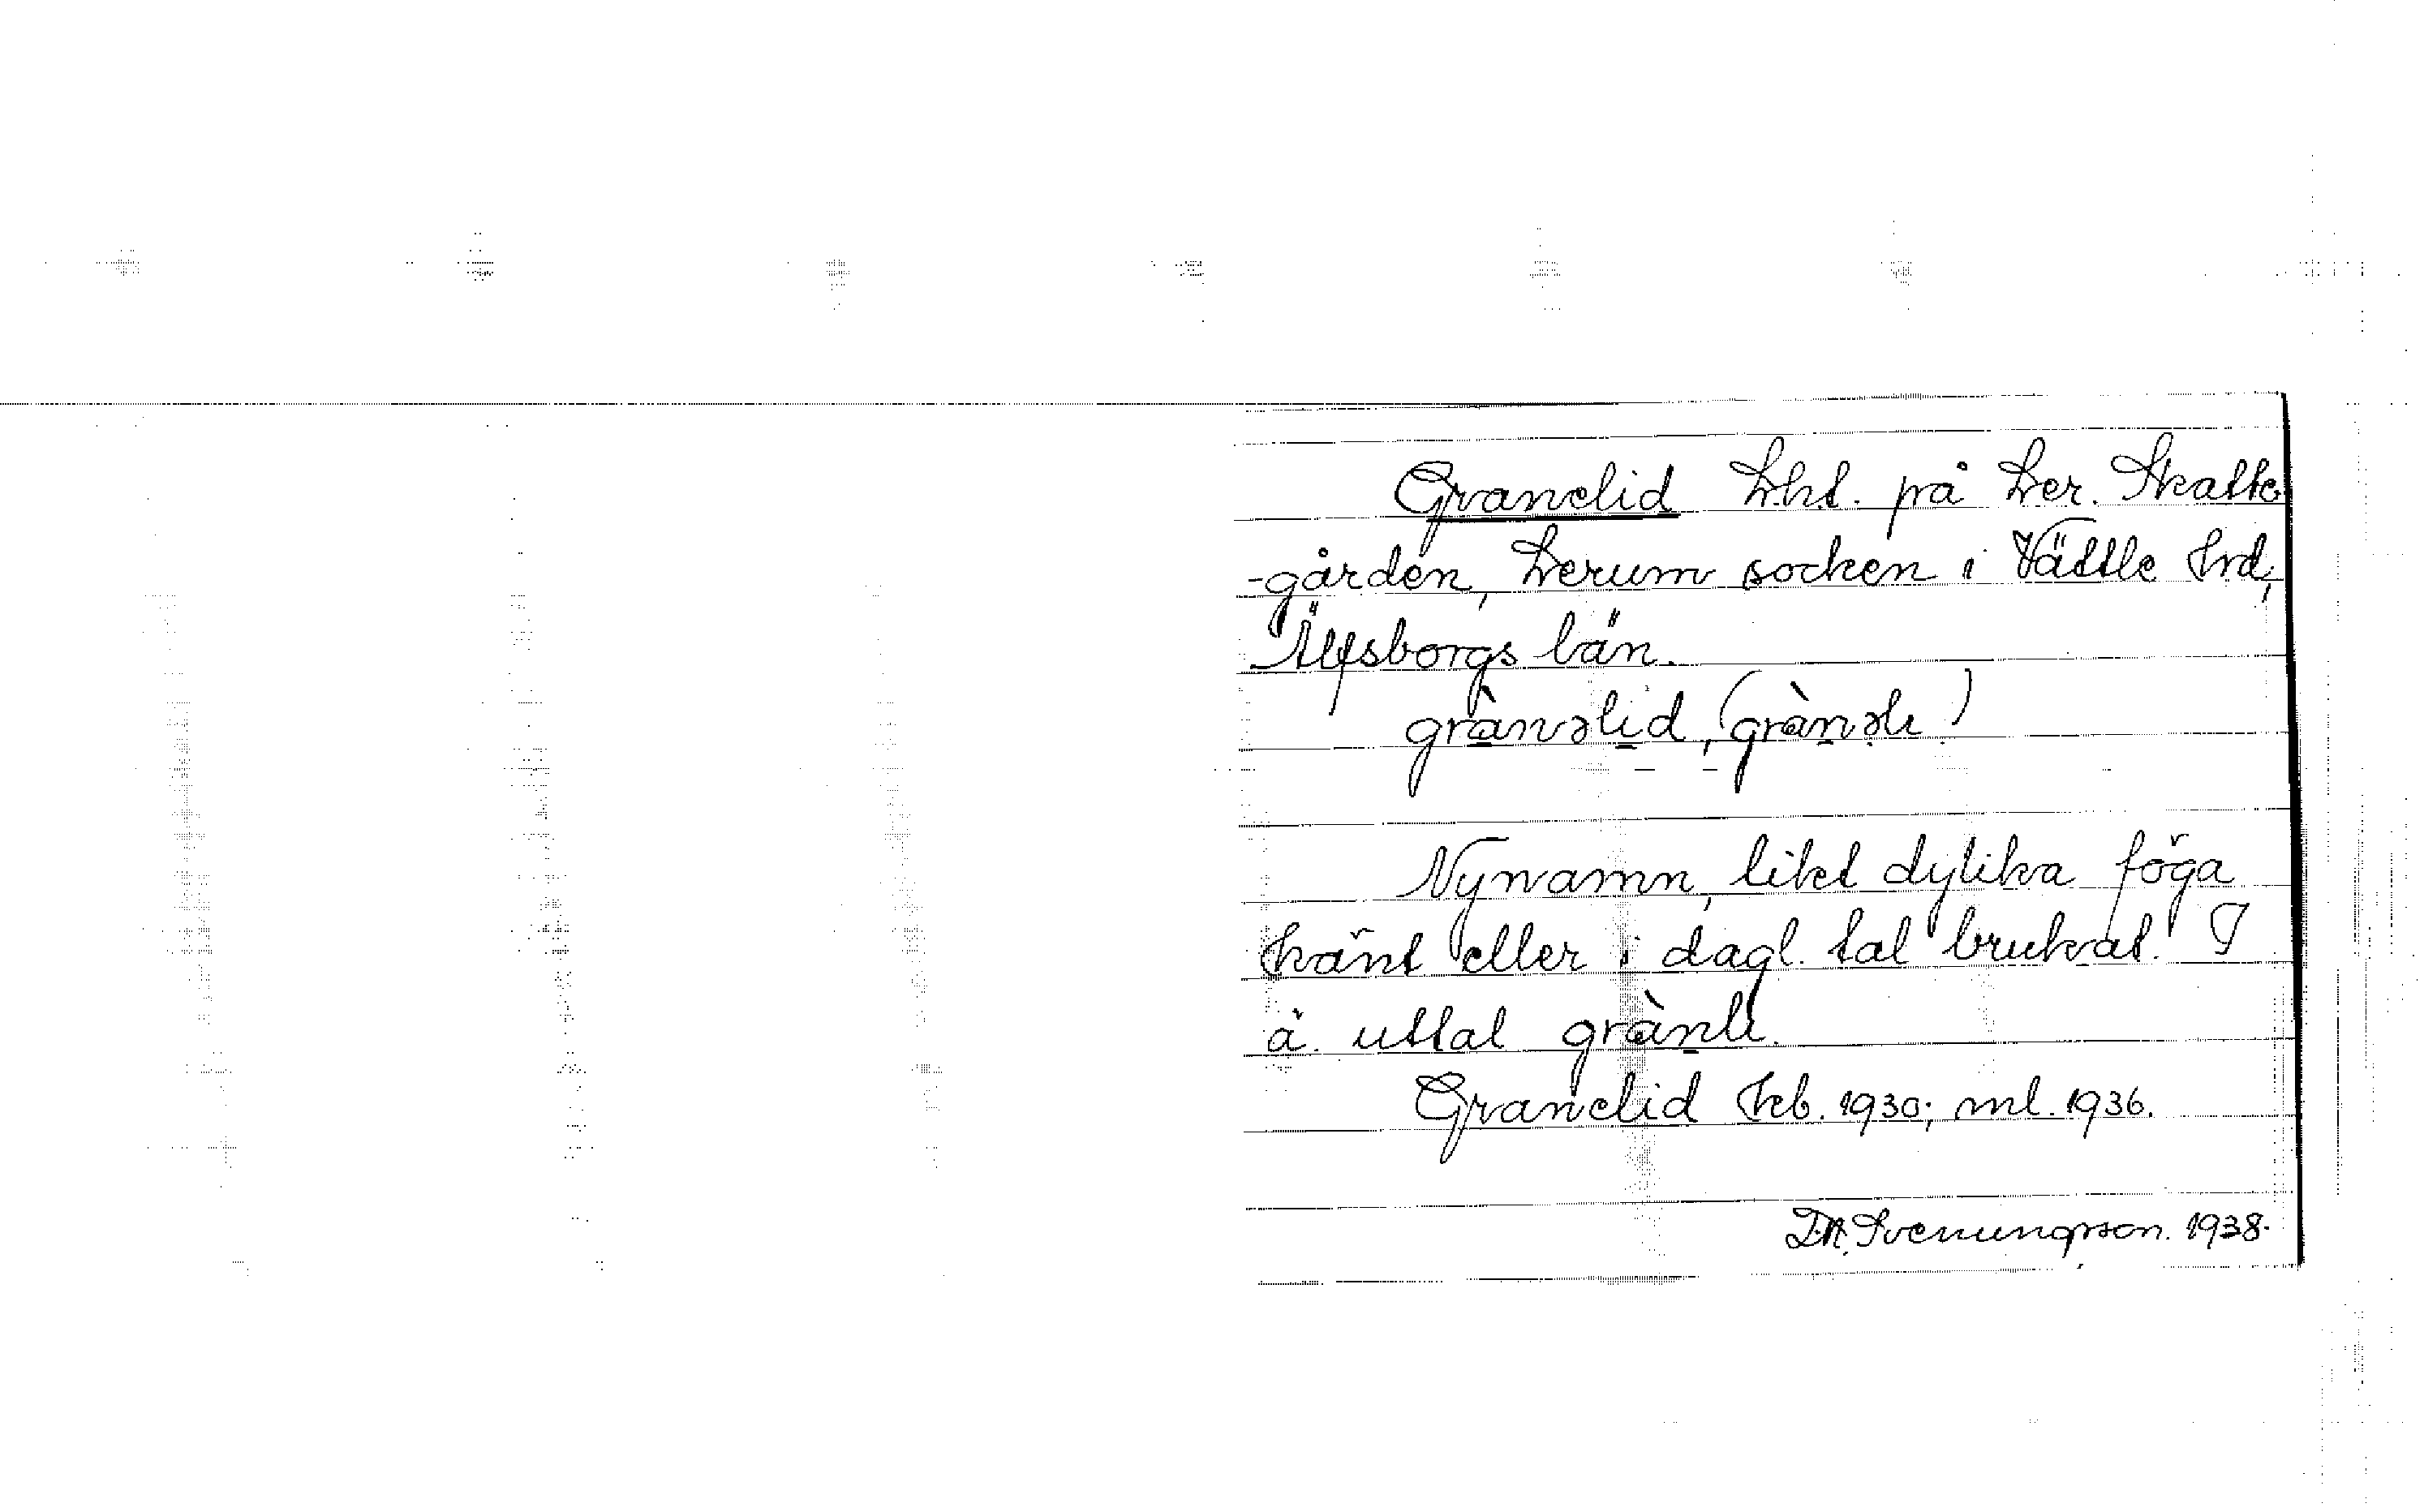 Granelid Lht. på Ler. Skatte-
-gården, Lerum socken i Vättle hrd,
Älfsborgs län.
grànəlid, (grànəli)
Nynamn, likt dylika föga
känt eller i dagl. tal brukat. I
ä. uttal grànli.
Granelid kb. 1930; ml. 1936.
D.A. Svenungsson. 1938.